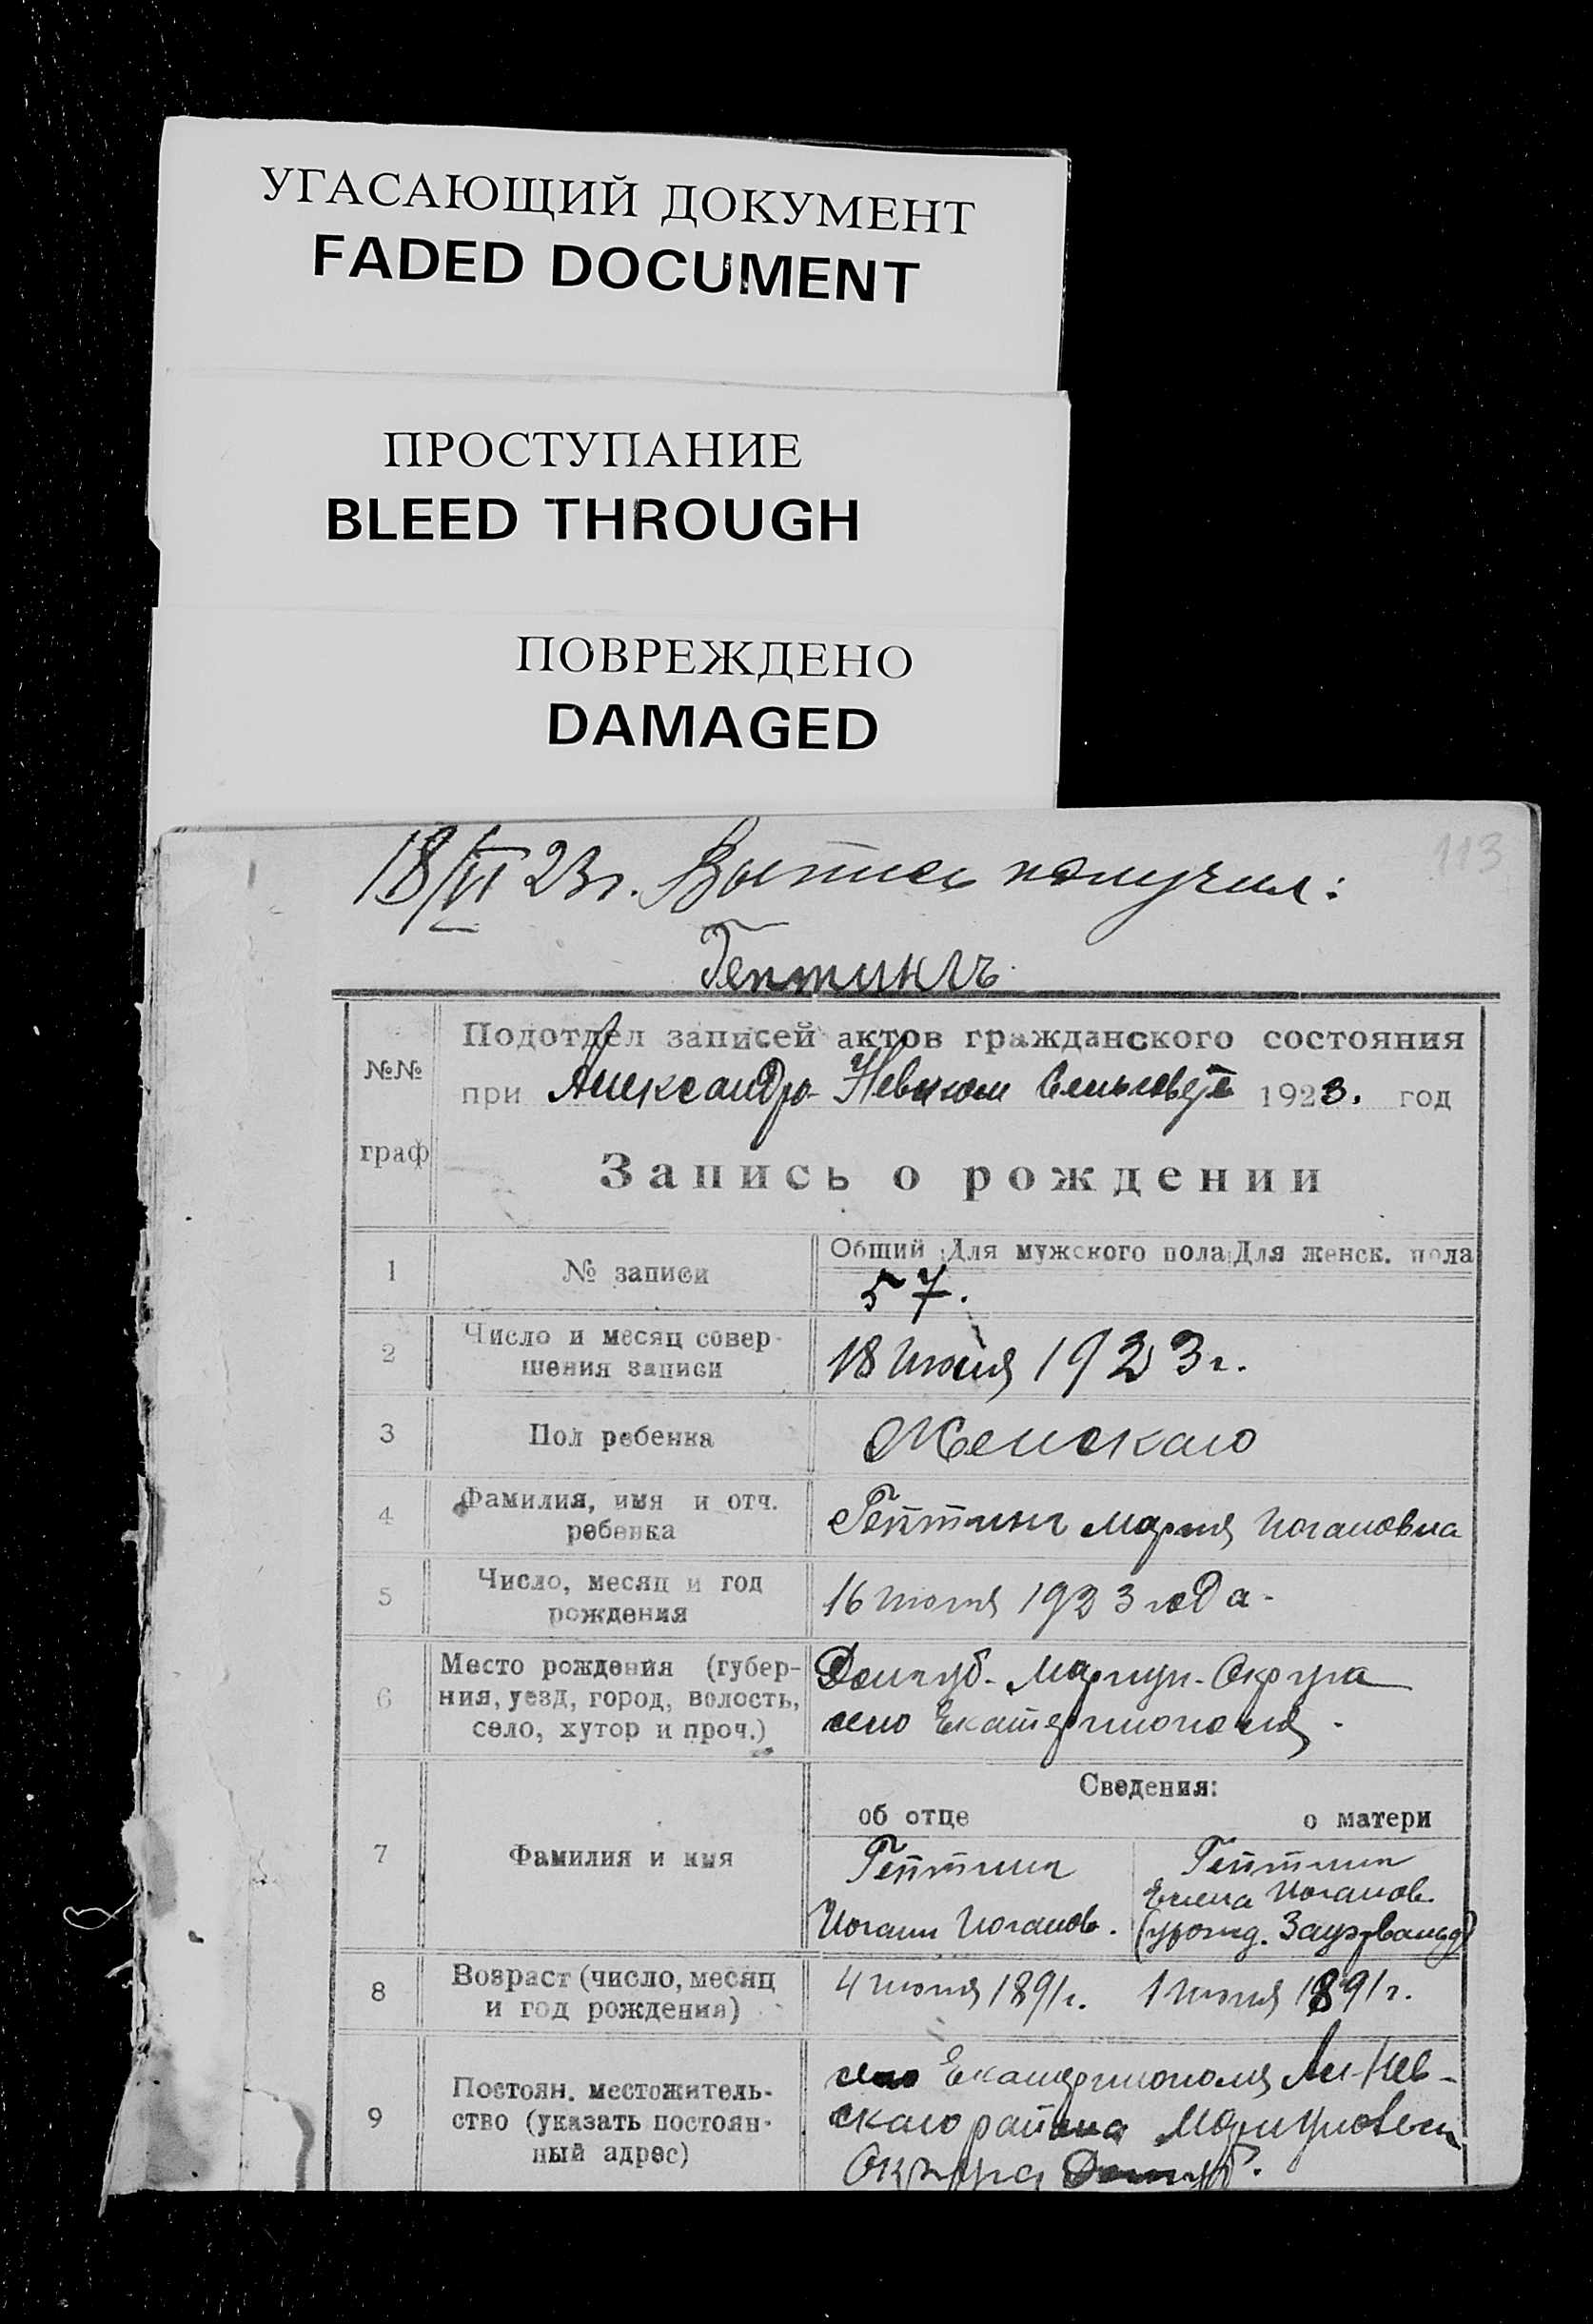 УГАСАЮЩИЙ ДОКУМЕНТ
FADED DOCUMENT
ПРОСТУПАНИЕ
BLEED THROUGH
ПОВРЕЖДЕНО
DAMAGED
113
18/VI 23 г. Выпись получил:
Гептингъ
№№
граф
Подотдел записей актов гражданского состояния
при Александро-Невском сельсовете 1923. год
Запись о рождении
1
№ записи
Общий Для мужского пола Для женск. пола
57.
2
Число и месяц совер-
шения записи
18 июня 1923 г.
3
Пол ребенка
Женскаго
4
Фамилия, имя и отч.
ребенка
Гептинг Мария Иогановна
5
Число, месяц и год
рождения
16 июня 1923 года.
6
Место рождения (губер-
ния, уезд, город, волость,
село, хутор и проч.)
Донгуб. Мариуп. Округа
село Екатеринополя.
Сведения:
об отце
о матери
7
Фамилия и имя
Гептинг
Иоганн Иоганов.
Гептинг
Елена Иоганов.
(урожд. Зауэрвальд)
8
Возраст (число, месяц
и год рождения)
4 июня 1891 г.
1 июня 1891 г.
9
Постоян. местожитель-
ство (указать постоян-
ный адрес)
село Екатеринополя Ал-Нев-
скаго района
Округа Донгуб.